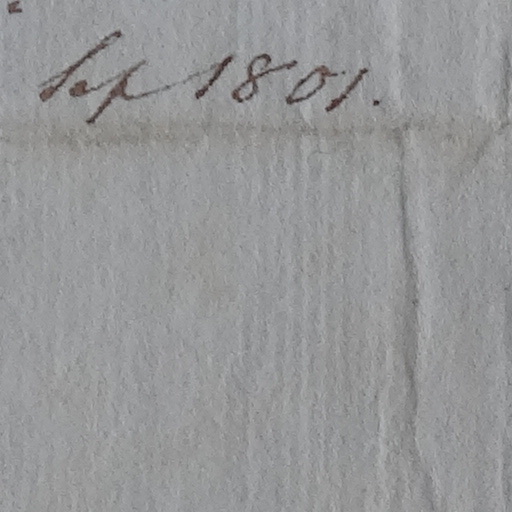 Sep 1801.